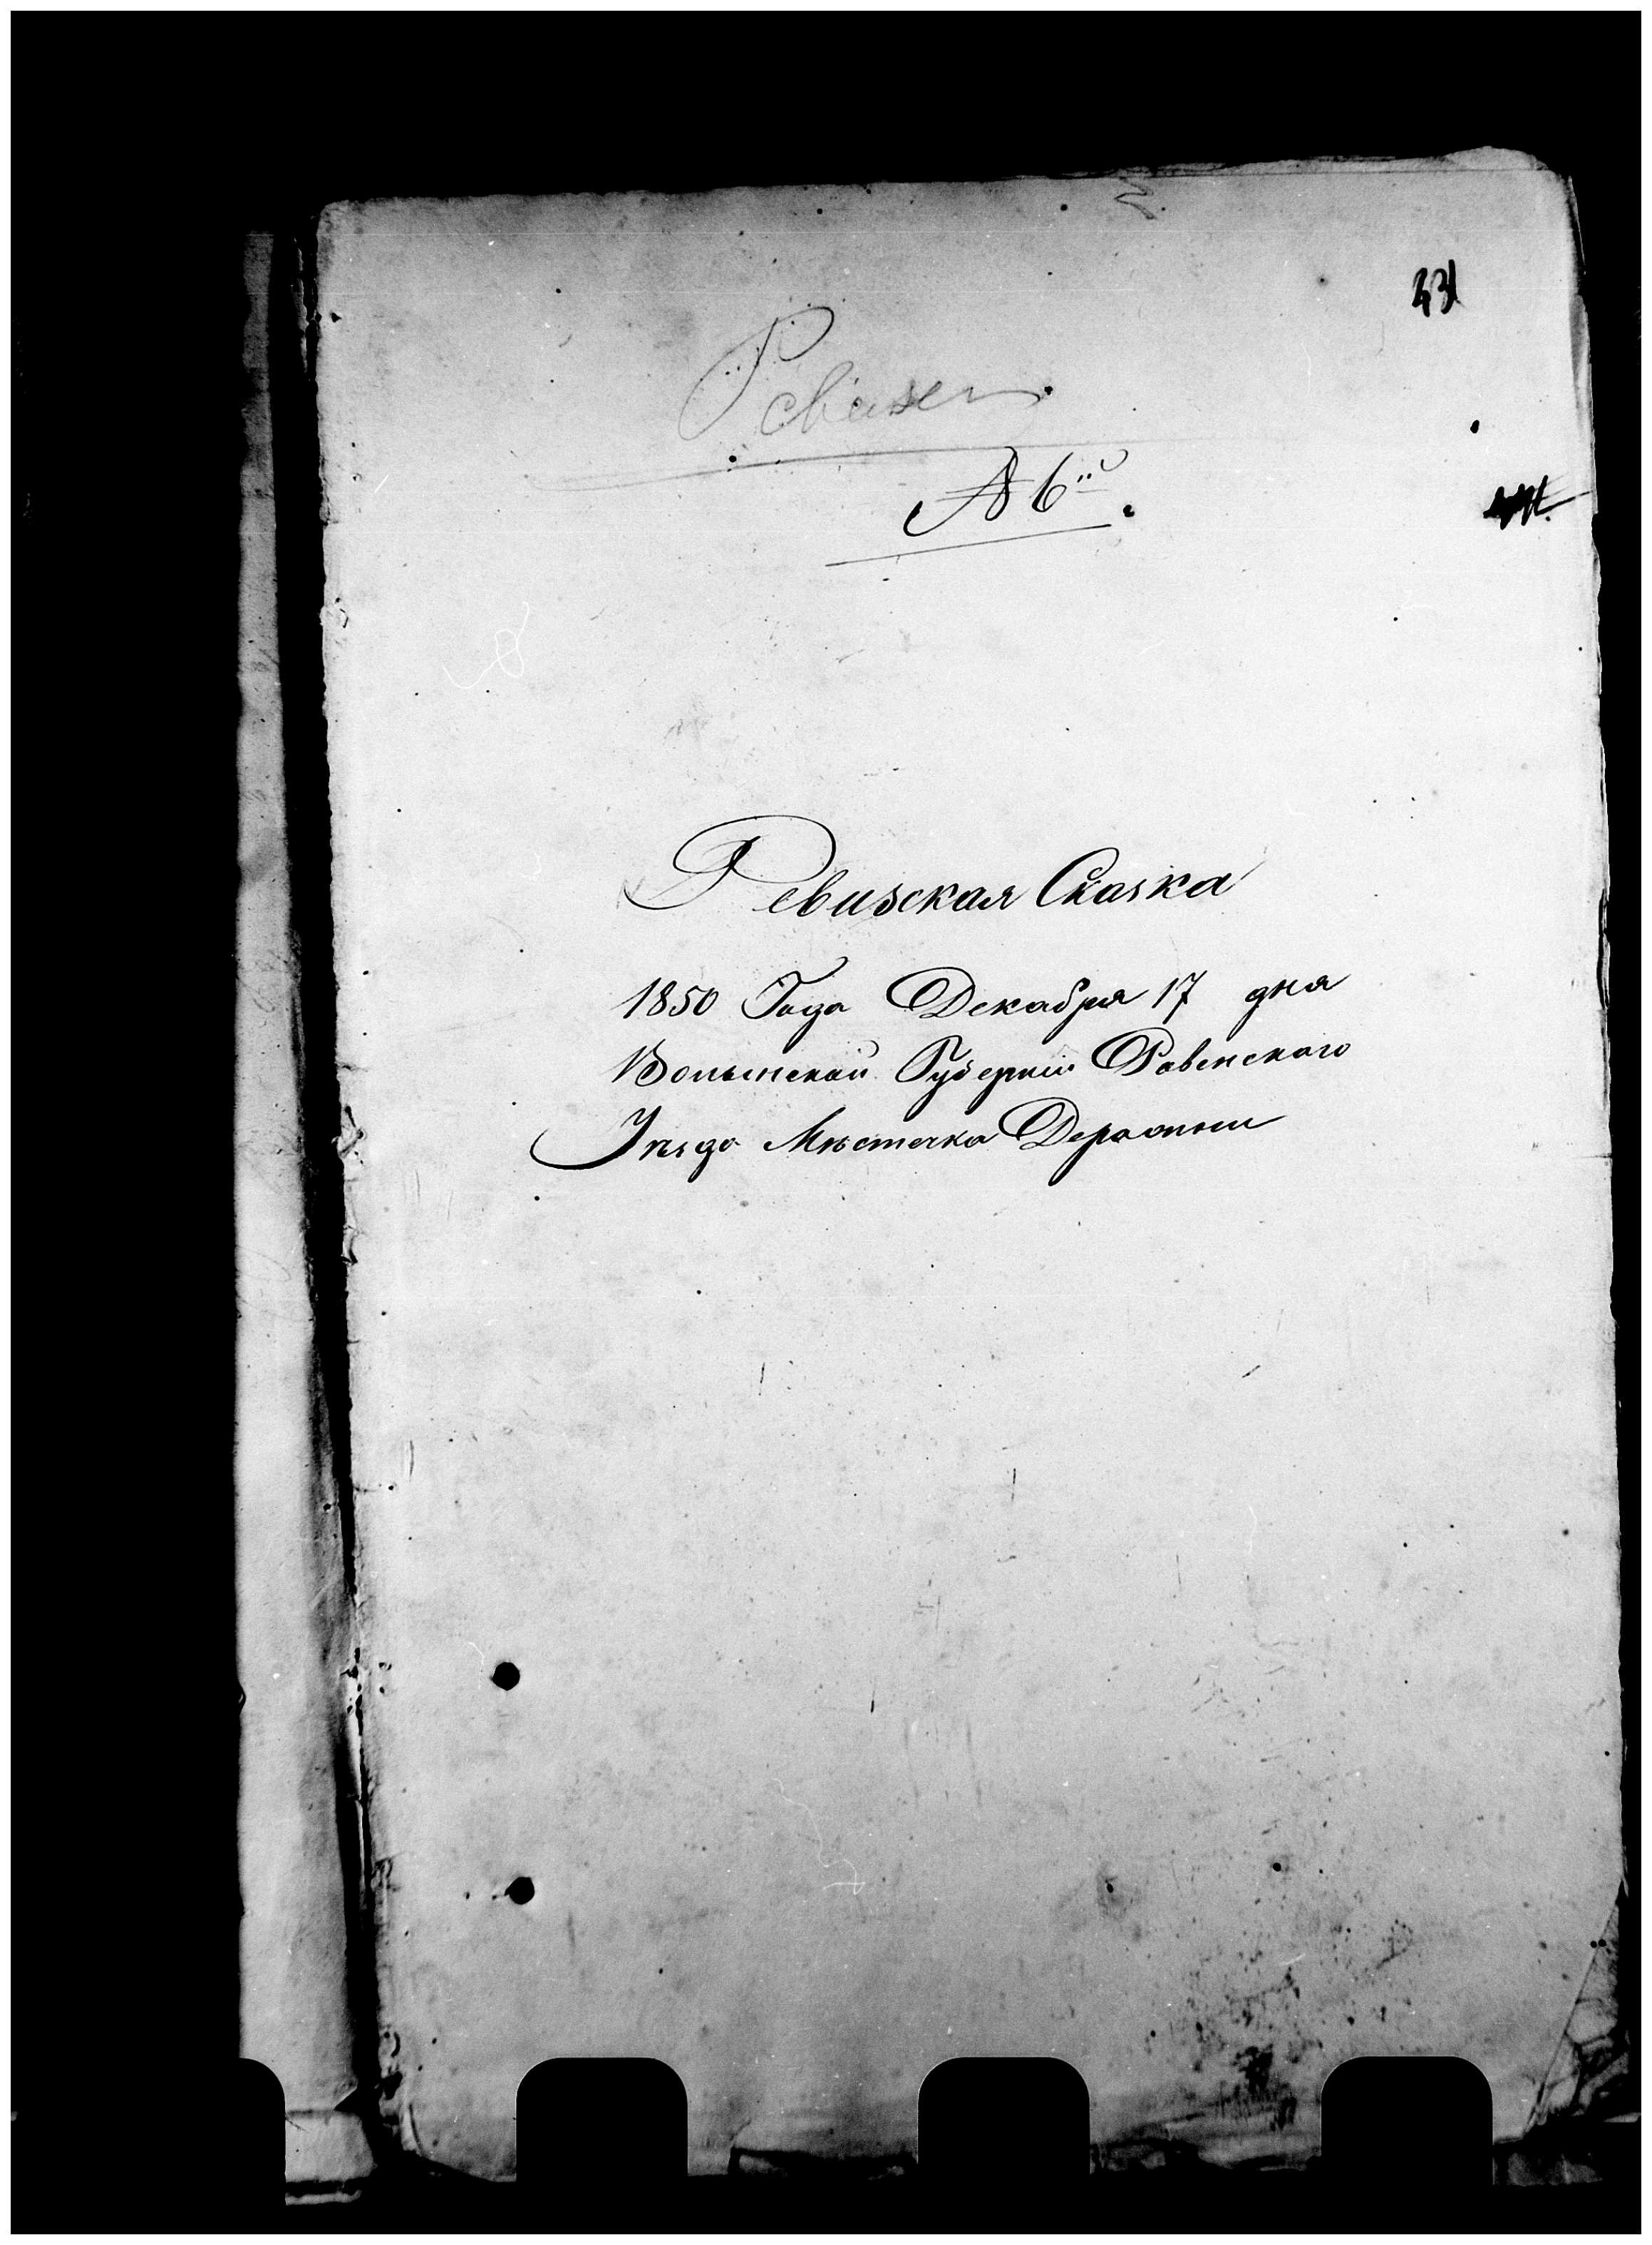 331
№ 6й.
Ревизская Сказка
1850 Года Декабря 17 дня
Волынской Губернии Ровенского
Уѣзда Мѣстечка Деражни